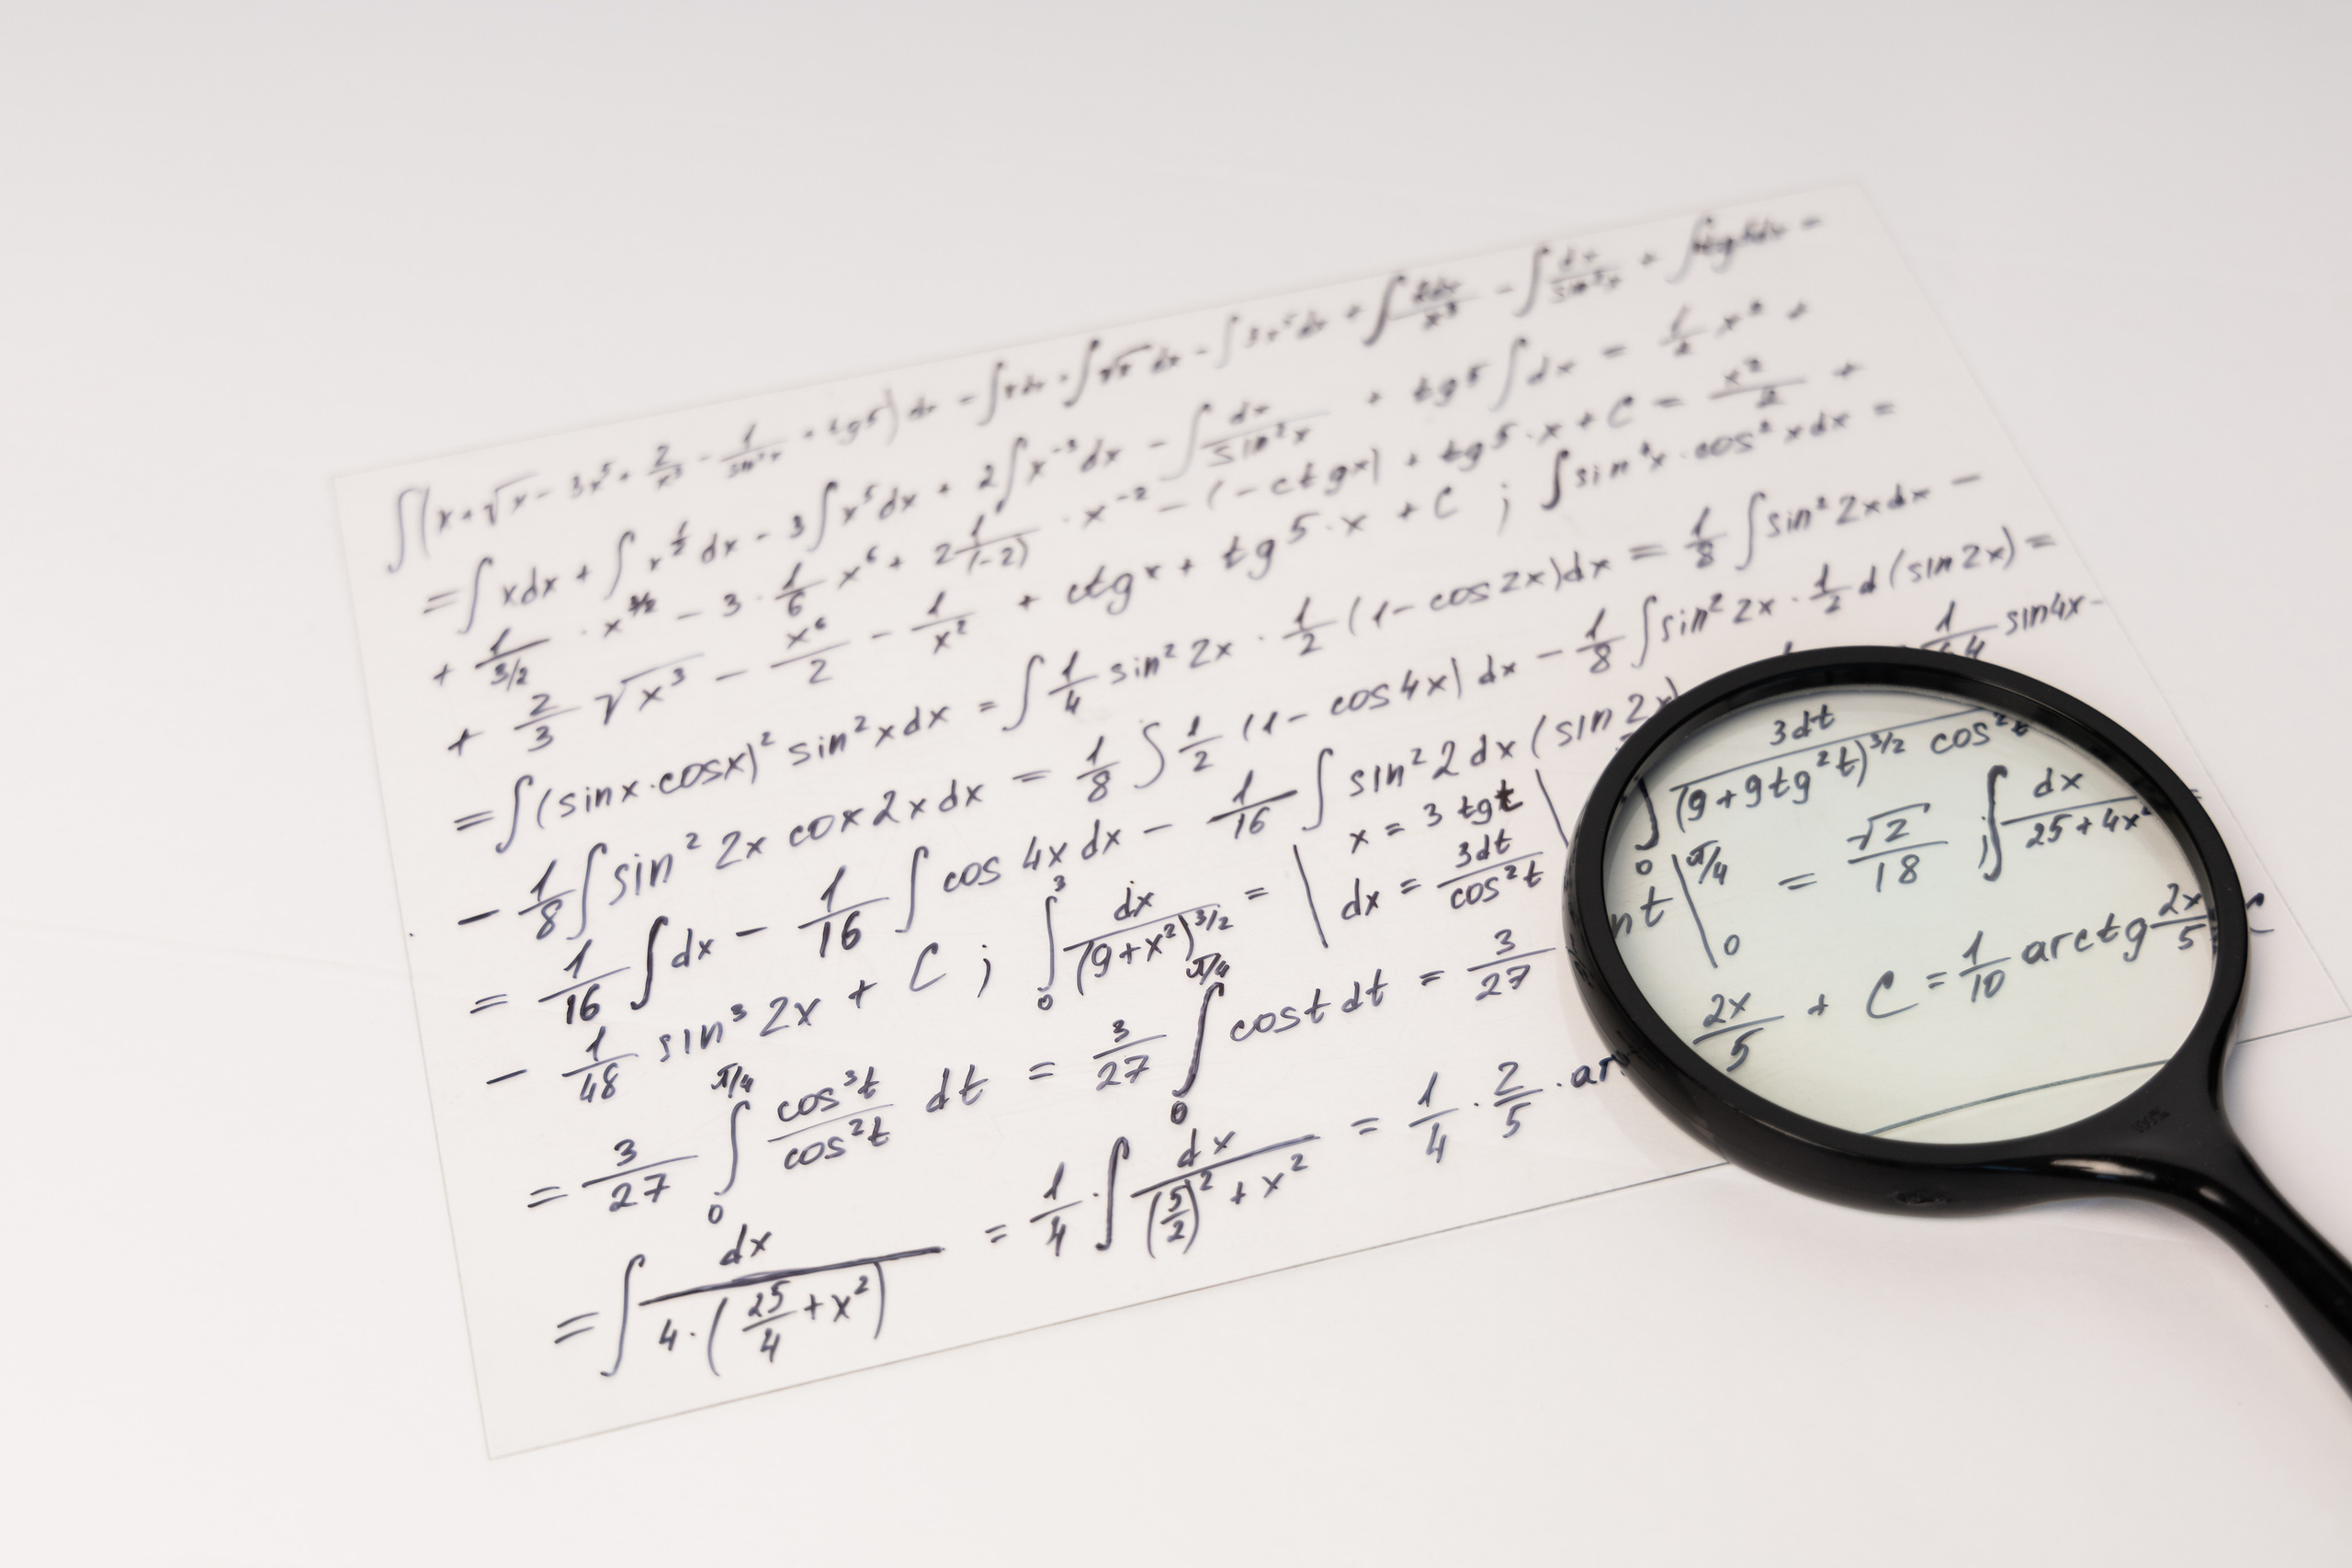 ∫(x + √x − 3x⁵ + 2/x³ − 1/sin²x + tg5) dx = ∫xdx + ∫√x dx − ∫3x⁵dx + ∫2dx/x³ − ∫dx/sin²x + ∫tg5dx =
= ∫xdx + ∫x^(1/2) dx − 3∫x⁵dx + 2∫x⁻³dx − ∫dx/sin²x + tg5∫dx = 1/2 x² +
+ 1/(3/2) · x^(3/2) − 3 · 1/6 x⁶ + 2 1/(−2) · x⁻² − (−ctgx) + tg5·x + C = x²/2 +
+ 2/3 √x³ − x⁶/2 − 1/x² + ctgx + tg5·x + C ; ∫sin⁴x · cos²xdx =
= ∫(sinx·cosx)² sin²xdx = ∫1/4 sin²2x · 1/2 (1 − cos2x)dx = 1/8 ∫sin²2xdx −
− 1/8 ∫sin²2x cox2xdx = 1/8 ∫1/2 (1 − cos4x) dx − 1/8 ∫sin²2x · 1/2 d(sin2x) =
= 1/16 ∫dx − 1/16 ∫cos 4x dx − 1/16 ∫sin²2dx (sin2x) sin4x −
− 1/48 sin³2x + C ; ∫₀³ dx/(9+x²)^(3/2) = | x = 3tgt dx = 3dt/cos²t | ∫₀ 3dt/(9+9tg²t)^(3/2) cos²t
= 3/27 ∫₀^(π/4) cos³t/cos²t dt = 3/27 ∫₀^(π/4) cost dt = 3/27 nt |₀^(π/4) = √2/18 ; ∫dx/(25+4x²) =
= ∫dx/(4·(25/4 + x²)) = 1/4 · ∫dx/((5/2)² + x²) = 1/4 · 2/5 · ar 2x/5 + C = 1/10 arctg 2x/5 C